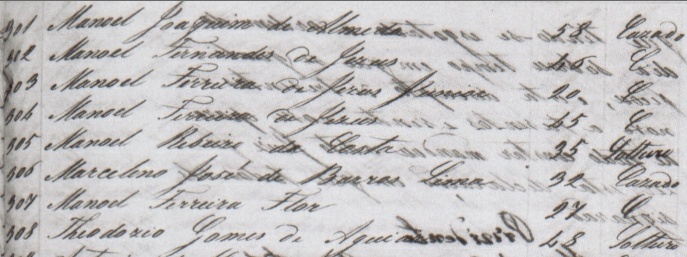 301 Manoel Joaquim de Almeida 58 Cazado
302 Manoel Fernandes de Jezus 26 C
303 Manoel Ferreira de Jezus Junior 20 C
304 Manoel Ferreira de Jezus 45 C
305 Manoel Ribeiro da Costa 35 Solteiro
306 Marcelino José de Barros Lima 32 Cazado
307 Manoel Ferreira Flor 27 C
308 Theodozio Gomes de Aguiar 48 Solteiro